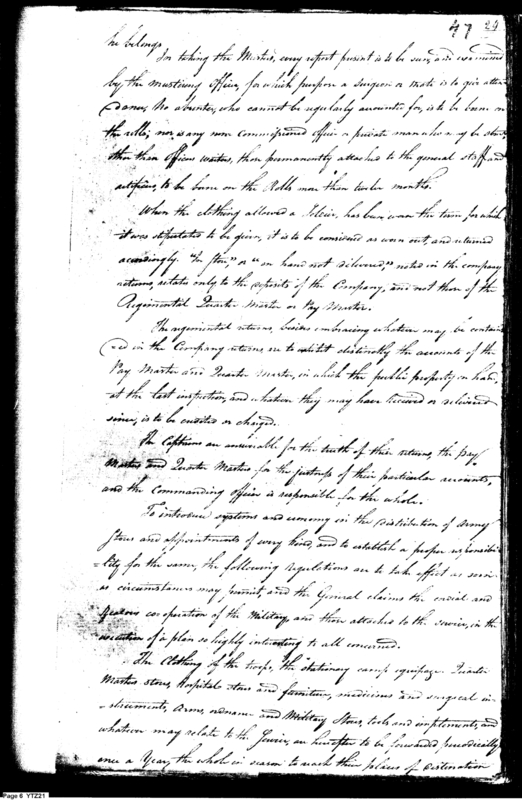 47 29
he belongs.
For taking the Musters, every report present is to be seen, and examined
by, the mustering officer, for which purpose a surgeon or mate is to give atten
=dance, No absentee, who cannot be regularly accounted for, is to be borne on
the rolls; nor, is any non commissioned officer or private man who may be absent
other than Officers waiters, those permanently attached to the general staff and
artificers, to be borne on the Rolls more than twelve months.
When the clothing allowed a Soldier, has been worn the term for which
it was stipulated to be given, it is to be considered as worn out, and returned
accordingly. "In Store," or "on hand not delivered," noted in the company
returns, relate only to the deposits of the Company, and not those of the
Regimental Quarter Master or Pay Master.
The regimental returns, besides embracing whatever may be contain
=ed in the Company returns, are to exhibit distinctly the accounts of the
Pay Master and Quarter Master, in which the public property on hand,
at the last inspection, and whatever they may have received or delivered
since, is to be credited or charged.
The Captains are answerable for the truth of their returns, the Pay
Masters and Quarter Masters for the justness of their particular accounts,
and the commanding officer is responsible for the whole.
To introduce systems and economy in the distribution of army
Stores and appointments of every kind, and to establish a proper responsibi
=lity for the same, the following regulations are to take effect as soon
as circumstances may permit, and the General claims the cordial and
zealous co-operation of the Military, and those attached to the service, in the
execution of a plan so highly interesting to all concerned.
The Clothing of the troops, the stationary camp equipage Quarter
Masters stores, Hospital stores and furniture, medicines and surgical in
=struments, Arms, ordnance and Military Stores, tools and implements, and
whatever may relate to the Service, are hereafter to be forwarded periodically
once a Year, the whole in season to reach their places of destination
Page 6 YTZ21